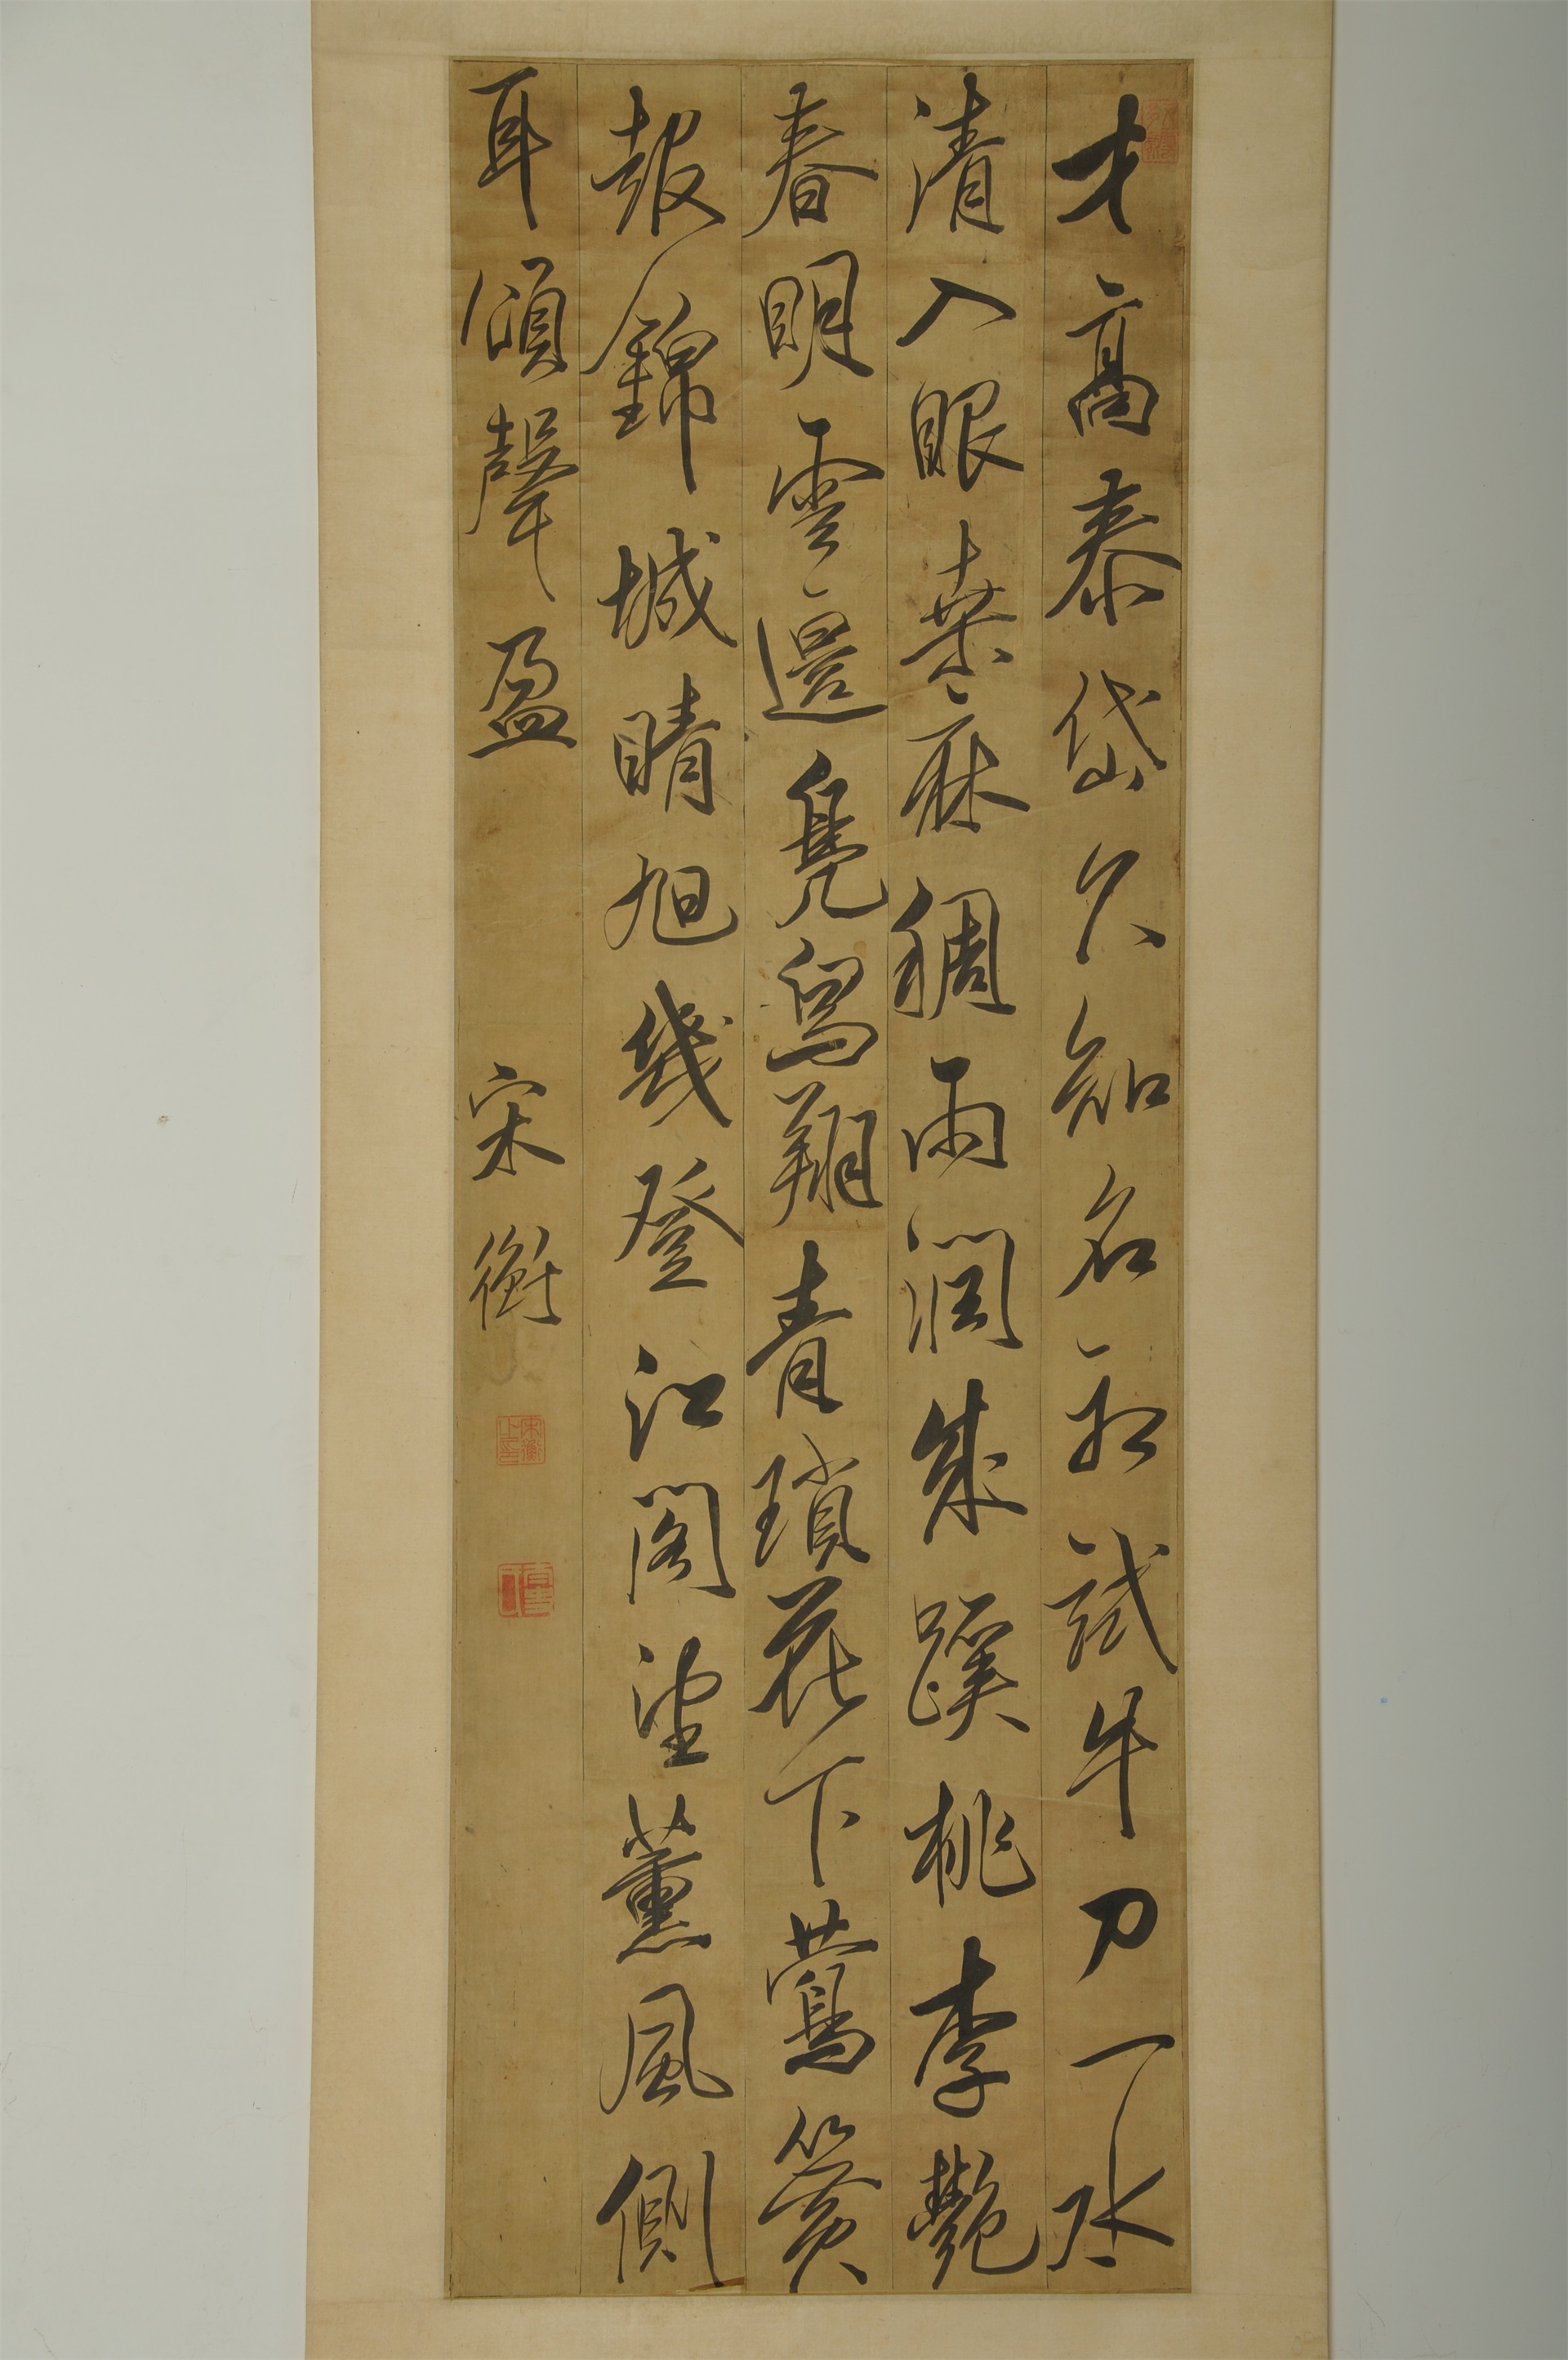 才高泰岱久知名初試牛刀一水
清入眼桑麻稠雨潤成蹊桃李艷
春明雲邊鳧舄翔青瑣花下鶯簧
報錦城晴旭幾登江閣望薰風側
耳頌聲盈
宋衡
宋衡之印